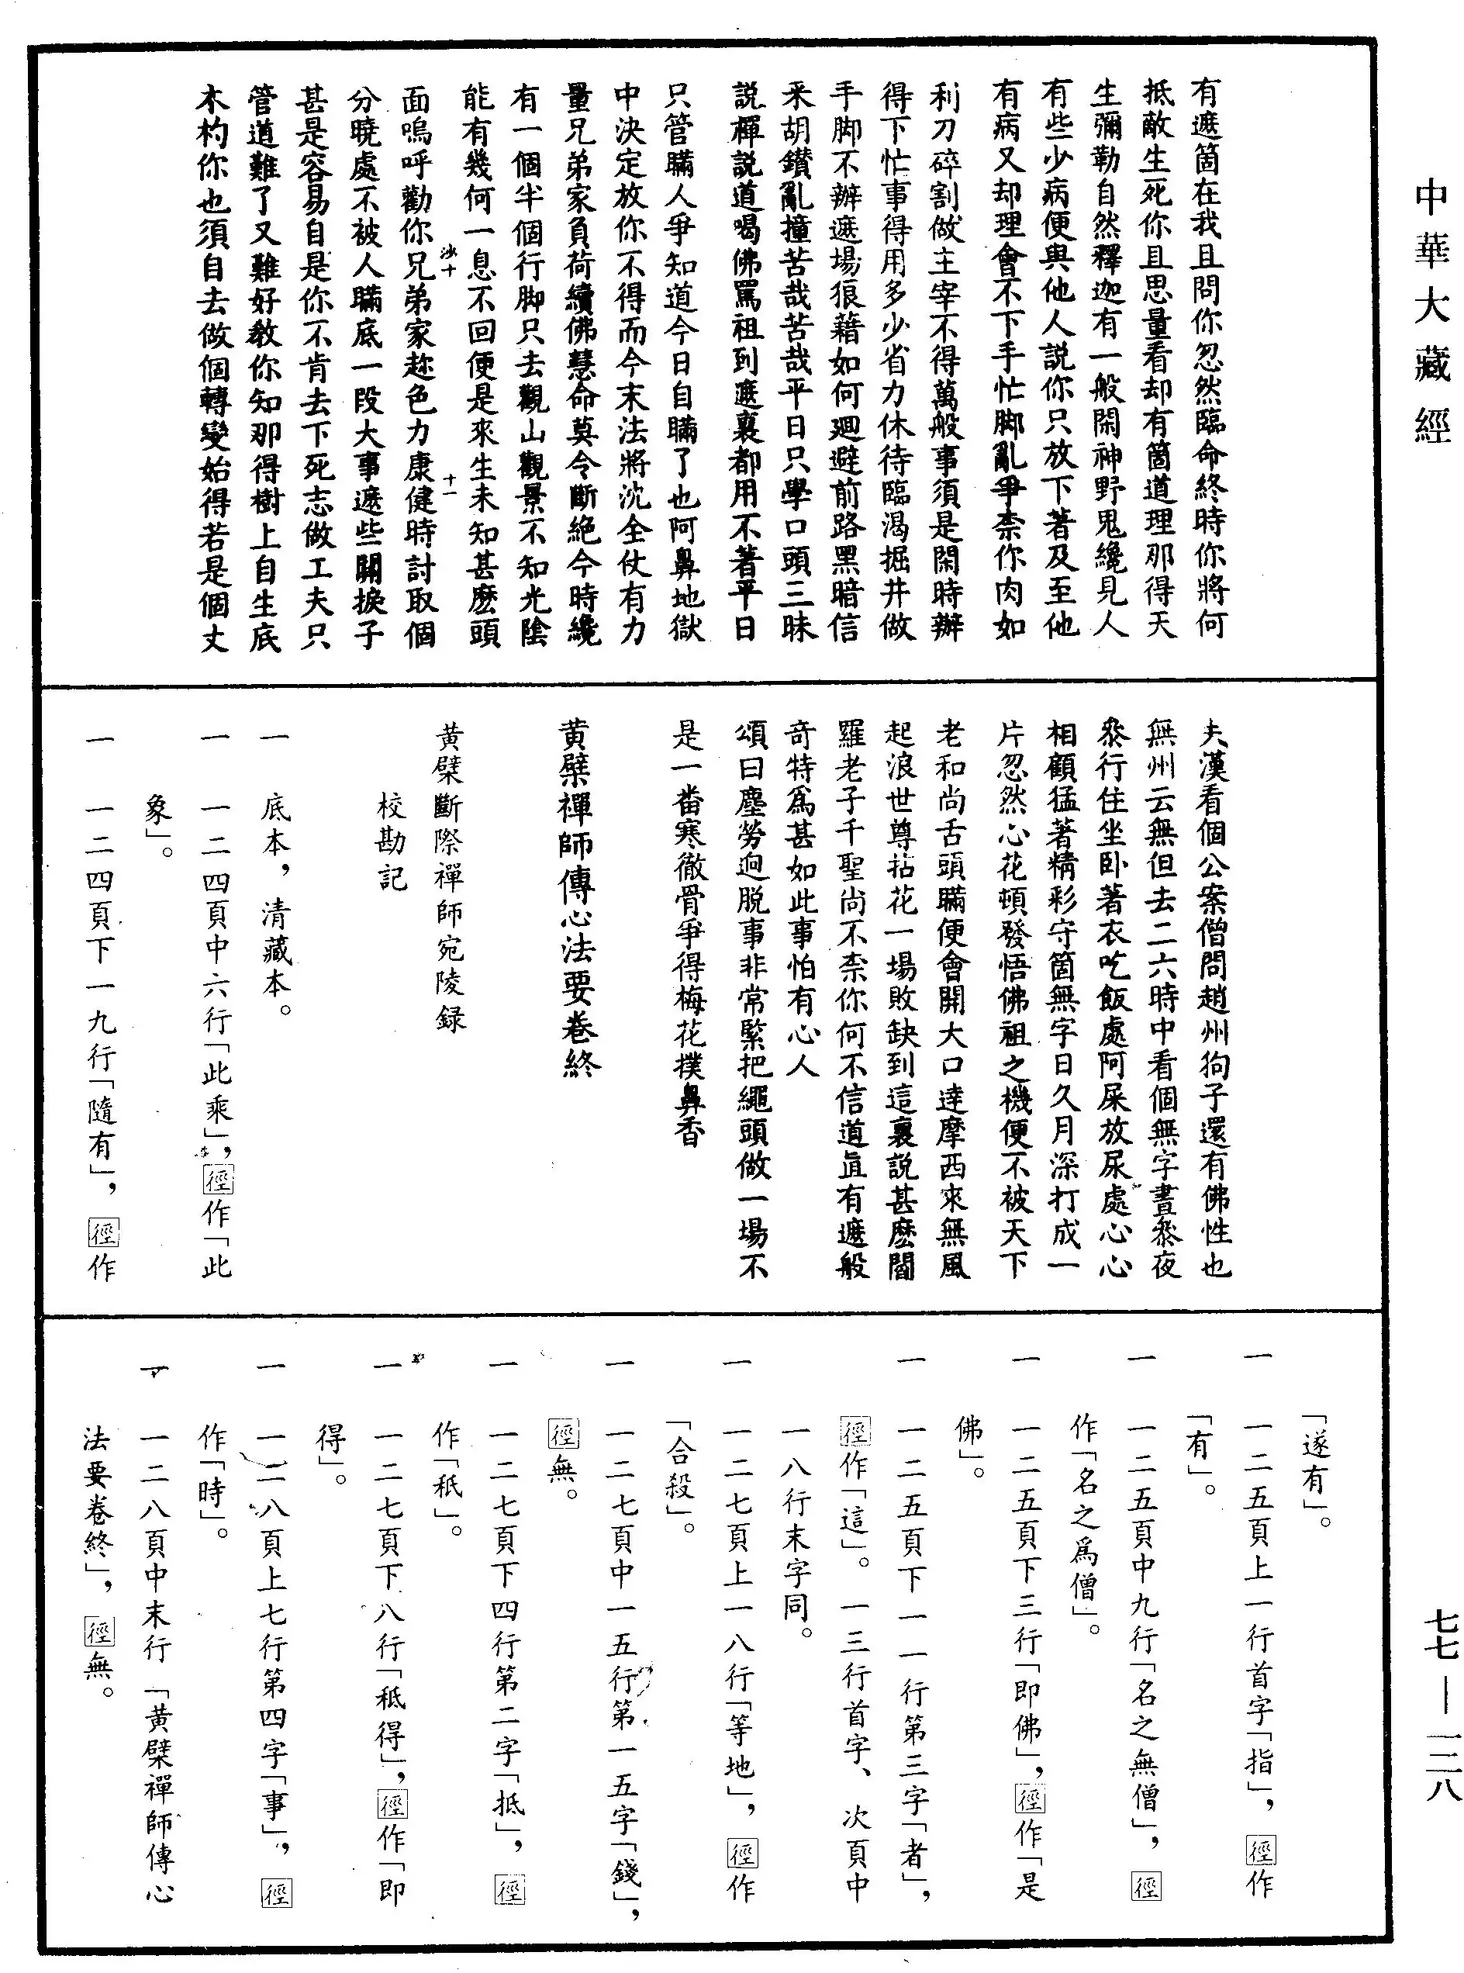 中華大藏經
有遮箇在我且問你忽然臨命終時你將何
抵敵生死你且思量看却有箇道理那得天
生彌勒自然釋迦有一般閑神野鬼纔見人
有些少病便與他人説你只放下著及至他
有病又却理會不下手忙脚亂爭柰你肉如
利刀碎割做主宰不得萬般事須是閑時辦
得下忙事得用多少省力休待臨渴掘井做
手脚不辦遮場狼籍如何迴避前路黑暗信
采胡鑚亂撞苦哉苦哉平日只學口頭三昧
説禪説道喝佛罵祖到遮裏都用不著平日
只管瞞人爭知道今日自瞞了也阿鼻地獄
中決定放你不得而今末法將沈全仗有力
量兄弟家負荷續佛慧命莫令斷絶今時纔
有一個半個行脚只去觀山觀景不知光陰
能有幾何一息不回便是來生未知甚麽頭
沙十
十一
面嗚呼勸你兄弟家趂色力康健時討取個
分曉處不被人瞞底一段大事遮些關捩子
甚是容易自是你不肯去下死志做工夫只
管道難了又難好教你知那得樹上自生底
木杓你也須自去做個轉變始得若是個丈
夫漢看個公案僧問趙州狗子還有佛性也
無州云無但去二六時中看個無字晝叅夜
叅行住坐卧著衣吃飯處阿屎放尿處心心
相顧猛著精彩守箇無字日久月深打成一
片忽然心花頓發悟佛祖之機便不被天下
老和尚舌頭瞞便會開大口達摩西來無風
起浪世尊拈花一場敗缺到這裏説甚麽閻
羅老子千聖尚不柰你何不信道直有遮般
奇特爲甚如此事怕有心人
頌曰塵勞迥脱事非常緊把繩頭做一場不
是一番寒徹骨爭得梅花撲鼻香
黄檗禪師傳心法要卷終
黄檗斷際禪師宛陵録
校勘記
一　底本，清藏本。
一　一二四頁中六行「此乘」，徑作「此
象」。
一　一二四頁下一九行「隨有」，徑作
「遂有」。
一　一二五頁上一行首字「指」，徑作
「有」。
一　一二五頁中九行「名之無僧」，徑
作「名之爲僧」。
一　一二五頁下三行「即佛」，徑作「是
佛」。
一　一二五頁下一一行第三字「者」，
徑作「這」。一三行首字、次頁中
一八行末字同。
一　一二七頁上一八行「等地」，徑作
「合殺」。
一　一二七頁中一五行第一五字「錢」，
徑無。
一　一二七頁下四行第二字「抵」，徑
作「秖」。
一　一二七頁下八行「秖得」，徑作「即
得」。
一　一二八頁上七行第四字「事」，徑
作「時」。
一　一二八頁中末行「黄檗禪師傳心
法要卷終」，徑無。
七七—一二八